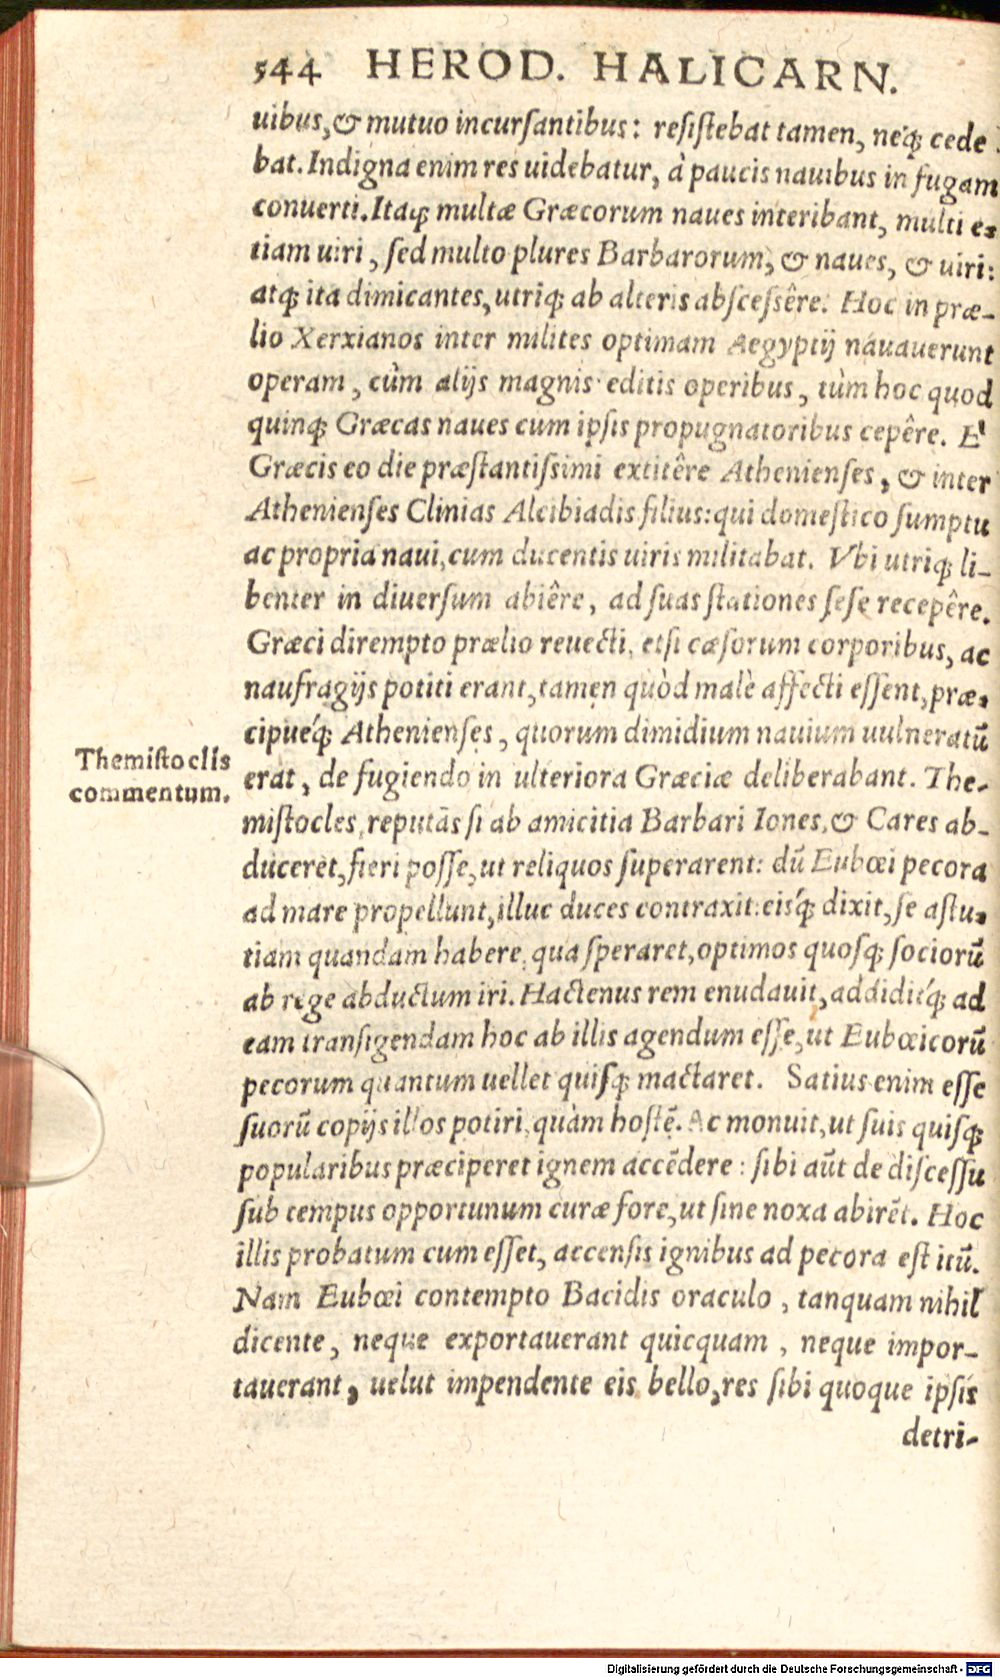 544 HEROD. HALICARN.
uibus, & mutuo incurſantibus: reſiſtebat tamen, neq́; cede
bat. Indigna enim res uidebatur, à paucis nauibus in fugam
conuerti. Itaq; multæ Græcorum naues interibant, multi e-
tiam uiri, ſed multo plures Barbarorum, & naues, & uiri:
atq; ita dimicantes, utriq; ab alteris abſceſſêre. Hoc in præ-
lio Xerxianos inter milites optimam Aegyptij náuauerunt
operam, cùm alijs magnis editis operibus, tùm hoc quod
quinq; Græcas naues cum ipſis propugnatoribus cepêre. E'
Græcis eo die præſtantiſsimi extitêre Athenienſes, & inter
Athenienſes Clinias Alcibiadis filius: qui domeſtico ſumptu
ac propria naui, cum ducentis uiris militabat. Vbi utriq; li-
benter in diuerſum abiêre, ad ſuas ſtationes ſeſe recepêre.
Græci dirempto prælio reuecti, etſi cæſorum corporibus, ac
naufragijs potiti erant, tamen quòd malè affecti eſſent, præ-
cipueq́; Athenienſes, quorum dimidium nauium uulneratū
erat, de fugiendo in ulteriora Græciæ deliberabant. The-
Themiſtoclis
commentum.
miſtocles, reputãs ſi ab amicitia Barbari Iones, & Cares ab-
duceret, fieri poſſe, ut reliquos ſuperarent: dū Eubœi pecora
ad mare propellunt, illuc duces contraxit: eisq́; dixit, ſe aſtu-
tiam quandam habere, qua ſperaret, optimos quoſq; ſociorū
ab rege abductum iri. Hactenus rem enudauit, addiditq́; ad
eam tranſigendam hoc ab illis agendum eſſe, ut Euboeicorū
pecorum quantum uellet quiſq; mactaret. Satius enim eſſe
ſuorū copijs illos potiri, quàm hoſtē. Ac monuit, ut ſuis quiſq;
popularibus præciperet ignem accēdere: ſibi aūt de diſceſſu
ſub tempus opportunum curæ fore, ut ſine noxa abirēt. Hoc
illis probatum cum eſſet, accenſis ignibus ad pecora eſt itū.
Nam Eubœi contempto Bacidis oraculo, tanquam nihil
dicente, neque exportauerant quicquam, neque impor-
tauerant, uelut impendente eis bello, res ſibi quoque ipſis
detri-
Digitalisierung gefördert durch die Deutsche Forschungsgemeinschaft - DFG